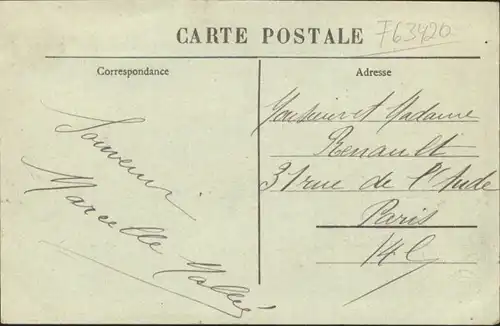 CARTE POSTALE
F63420
Correspondance
Adresse
Souvenir
Marcelle
Monsieur et Madame
Renault
31 rue de l'Aude
Paris
14e